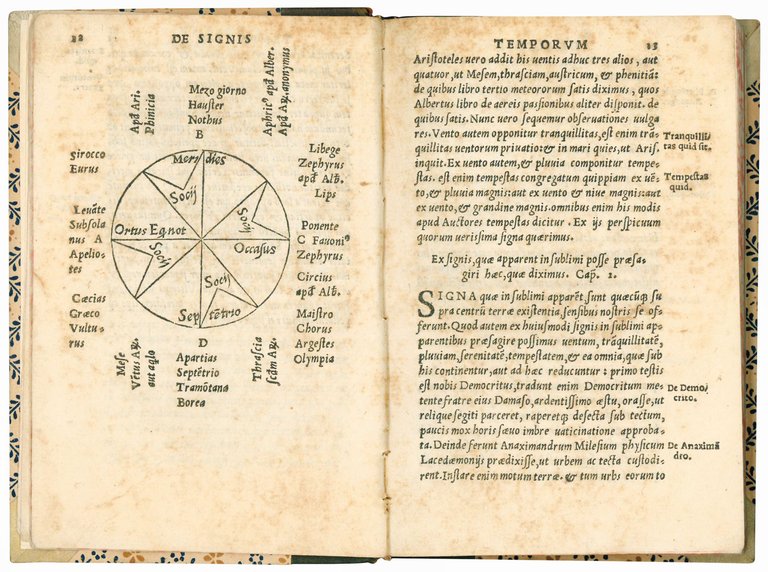 12
DE SIGNIS
Apđ Ari.
Phinicia
Mezo giorno
Hauster
Nothus
B
Aphric⁹ apđ Alber.
Apđ anonymus
Sirocco
Eurus
Libege
Zephyrus
apđ Alb.
Lips
Meridies
Socij
Socij
Leuāte
Subsola
nus A
Apelio-
tes
Ortus Eqnot
Occasus
Ponente
C Fauoni⁹
Zephyrus
Socij
Socij
Circius
apđ Alb.
Septētrio
Cæcias
Græco
Vultu-
rus
Maistro
Chorus
Argestes
Olympia
Mese
Vētus
aut aqlo
D
Apartias
Septētrio
Tramōtana
Borea
Thrascia
TEMPORVM
13
Aristoteles uero addit his uentis adhuc tres alios, aut
quatuor, ut Mesem, thrasciam, austricum, & phenitiā:
de quibus libro tertio meteororum satis diximus, quos
Albertus libro de aereis passionibus aliter disponit. de
quibus satis. Nunc uero sequemur obseruationes uulga
res. Vento autem opponitur tranquillitas, est enim trā-
quillitas uentorum priuatio: & in mari quies, ut Aris.
inquit. Ex uento autem, & pluuia componitur tempe-
stas. est enim tempestas congregatum quippiam ex uē-
to, & pluuia magnis: aut ex uento & niue magnis: aut
ex uento, & grandine magnis. omnibus enim his modis
apud Auctores tempestas dicitur. Ex ijs perspicuum
quorum uerissima signa quærimus.
Tranquilli
tas quid sit.
Tempestas
quid.
Ex signis, quæ apparent in sublimi posse præsa-
giri hæc, quæ diximus. Cap. 1.
SIGNA quæ in sublimi apparēt, sunt quæcūq; su
pra centrū terræ existentia, sensibus nostris se of-
ferunt. Quod autem ex huiusmodi signis in sublimi ap-
parentibus præsagire possimus uentum, trāquillitatē,
pluuiam, serenitatē, tempestatem, & ea omnia, quæ sub
his continentur, aut ad hæc reducuntur: primo testis
est nobis Democritus, tradunt enim Democritum me-
tente fratre eius Damaso, ardentissimo æstu, orasse, ut
relique segiti parceret, raperetq; desecta sub tectum,
paucis mox horis sæuo imbre uaticinatione approba-
ta. Deinde ferunt Anaximandrum Milesium physicum
Lacedæmonijs prædixisse, ut urbem ac tecta custodi-
rent. Instare enim motum terræ. & tum urbs eorum to
De Demo
crito.
De Anaximā
dro.